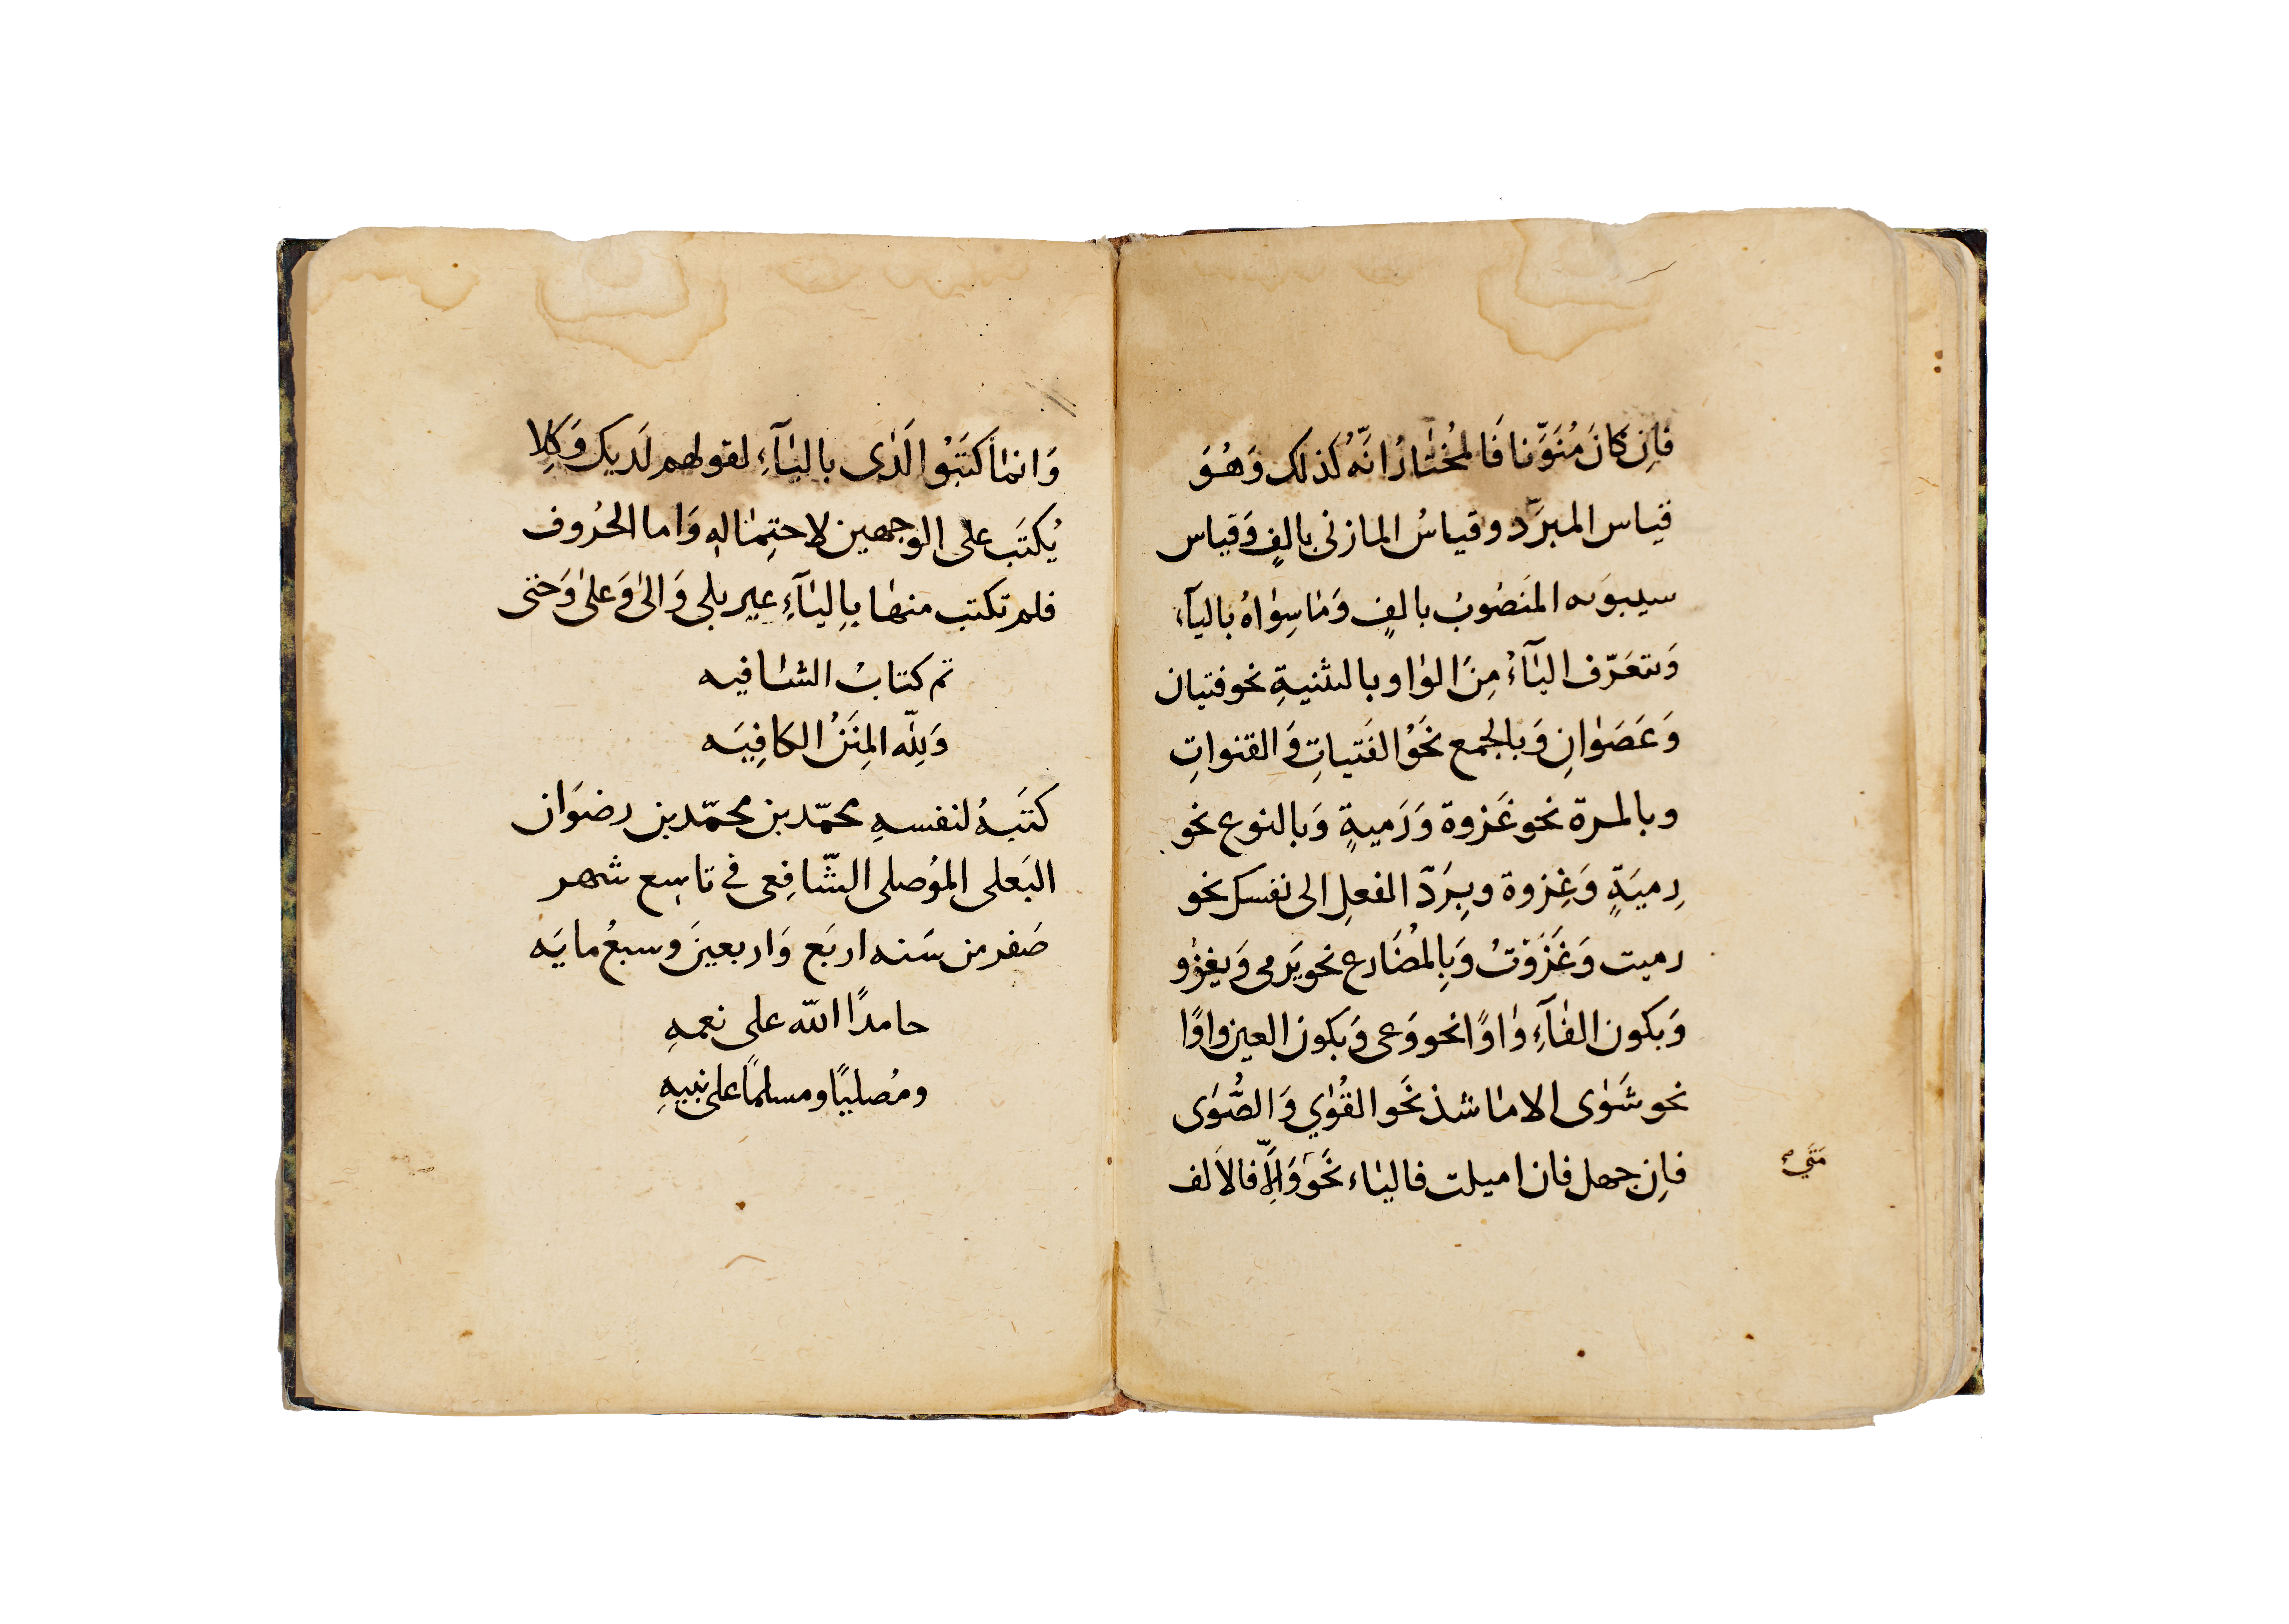 فاِن كانَ مُنَوَّنا فَالمُختٰارُ انَّهُ كَذلك وَهُوَ
قياس المبرَّد وقياسُ المازنى بالفٍ وَقياس
سيبوَيه المنَصُوبُ بالفٍ وَمٰا سِوٰاهُ باليآءِ
وَتتعَرّف اليٰآءُ مِنَ الوٰاو بالتثنيةِ نحو فتيان
وَعَصَوٰانِ وَبالجمع نحَوُ الفَتياتِ وَ القنواتِ
وبالمرة نحو غَزوة وَرَميةٍ وَبالنوع نحو
رِميَةٍ وَغِزوة وبِرَدّ الفعلِ الى نفسك نحو
رميت وَغَزَوْتُ وَبِالمُضَارع نحو يَرمى وَيغزُو
وَبكون الفٰآءِ وٰاوًا نحو وَعى وَبكون العين واوًا
نحو شَوٰى الا مٰا شذ نحَو القُوٰي وَ الصُّوَى
فاِن جهل فان اميلت فاليٰاء نحَو وَاِلّا فالاَلف
مَتَى
وَانمٰا كتَبُوا لَدٰى باليٰآءِ لقولهم لَديك وَكِلا
يُكتَب على الوجهين لاحتِمٰالهِ وَاما الحرُوف
فلم تكتب منهٰا بِاليٰآءِ غير بلى وَالىٰ وَعلىٰ وَحتى
تم كتابُ الشٰافيه
وَلِلّه المِنَنُ الكاَفِيَه
كتَبهُ لنفسهِ محمّد بن محمّد بن رضوَان
البَعلى الموُصلى الشّافِعى فى تاسِع شهر
صَفر من سَنه اربَع وَاربعينَ وسبعُ مايَه
حامدًا اللّه على نعمهِ
ومُصليًا ومسلمًا على نبيهِ